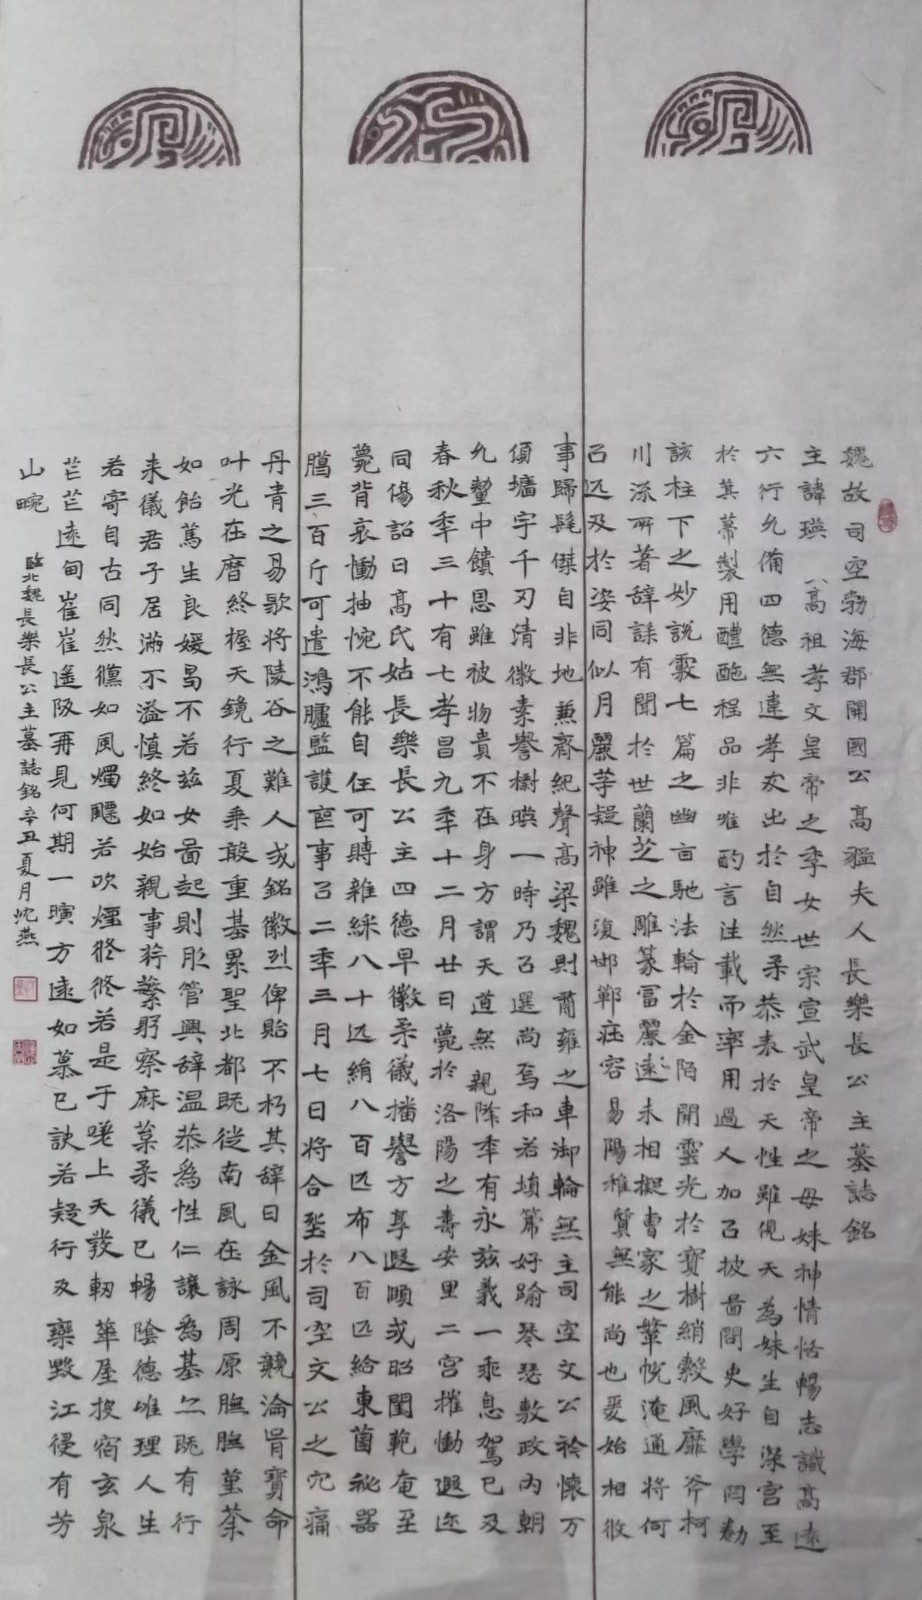 魏故司空勃海郡開國公高猛夫人長樂長公主墓誌銘
主諱瑛高祖孝文皇帝之季女世宗宣武皇帝之母妹神情恬暢志識高遠
六行允備四德無違孝友出於自然柔恭表於天性雖俔天為妹生自深宮至
於箕帚製用醴酏程品非唯酌言注載而率用過人加以披啚問史好學罔勌
該柱下之妙說覈七篇之幽旨馳法輪於金陌開靈光於寶樹綃縠風靡斧柯
川流所著辭誄有聞於世蘭芝之雕篆富麗遠未相擬曹家之鞶帨淹通將何
以匹及於姿同似月麗等疑神雖復邯鄲莊容易陽稚質無能尚也爰始相攸
事歸髦傑自非地兼齊紀聲高梁魏則肅雍之車御輪無主司空文公衿懷万
傾墻宇千刃清徽素譽樹暎一時乃以選尚焉和若塤箎好踰琴瑟敷政內朝
允釐中饋恩雖被物貴不在身方謂天道無親降秊有永茲義一乖息駕已及
春秋秊三十有七孝昌九秊十二月廿日薨於洛陽之壽安里二宮摧慟遐迩
同傷詔曰高氏姑長樂長公主四德早徽柔儀播譽方享遐順或昭閨範奄至
薨背哀慟抽惋不能自任可賻雜綵八十匹絹八百匹布八百匹給東園祕器
臈三百斤可遣鴻臚監護喪事以二秊三月七日將合塟於司空文公之穴痛
丹青之易歇將陵谷之難人或銘徽烈俾貽不朽其辭曰金風不競淪胥寶命
叶光在曆終握天鏡行夏乘殷重基累聖北都既從南風在詠周原膴膴堇荼
如飴篤生良媛曷不若茲女啚起則肜管興辭温恭為性仁讓為基亦既有行
来儀君子居滿不溢慎終如始親事荇蘩躬察麻枲柔儀已暢陰德唯理人生
若寄自古同然儵如風燭飃若吹煙悠悠若是于嗟上天發軔華屋投宿玄泉
芒芒遠甸崔崔遙阪再見何期一曠方遠如慕已訣若疑行及欒毀江隄有芳
山畹
臨北魏長樂長公主墓誌銘辛丑夏月沈燕